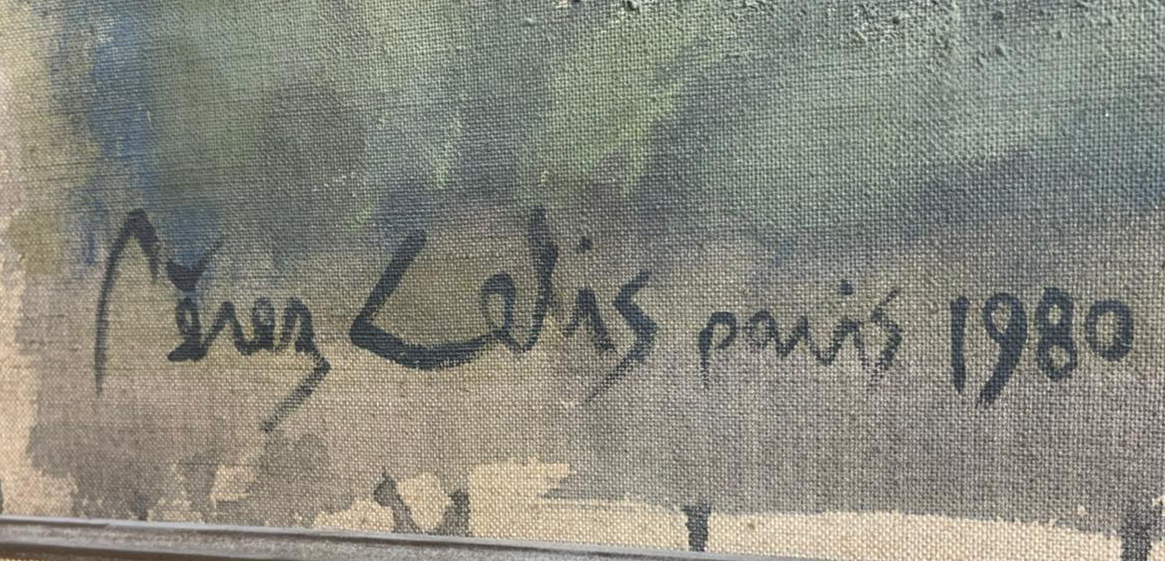 Pérez Celis paris 1980